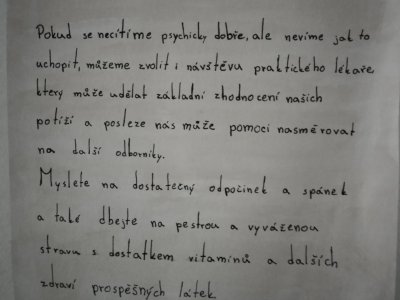 Pokud se necítíme psychicky dobře, ale nevíme jak to
uchopit, můžeme zvolit i návštěvu praktického lékaře,
který může udělat základní zhodnocení našich
potíží a posleze nás může pomoci nasměrovat
na další odborníky.
Myslete na dostatečný odpočinek a spánek
a také dbejte na pestrou a vyváženou
stravu s dostatkem vitamínů a dalších
zdraví prospěšných látek